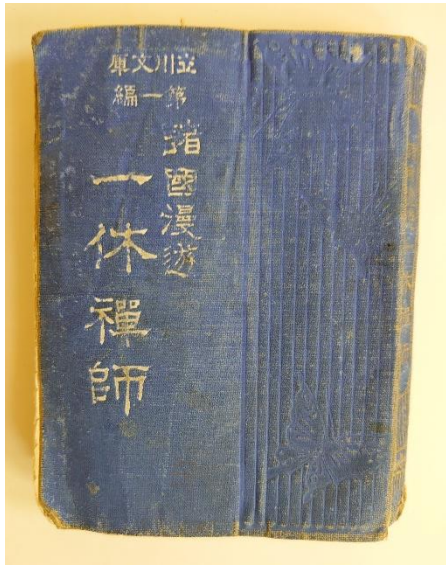 立川文庫
第一編
諸國漫遊
一休禪師